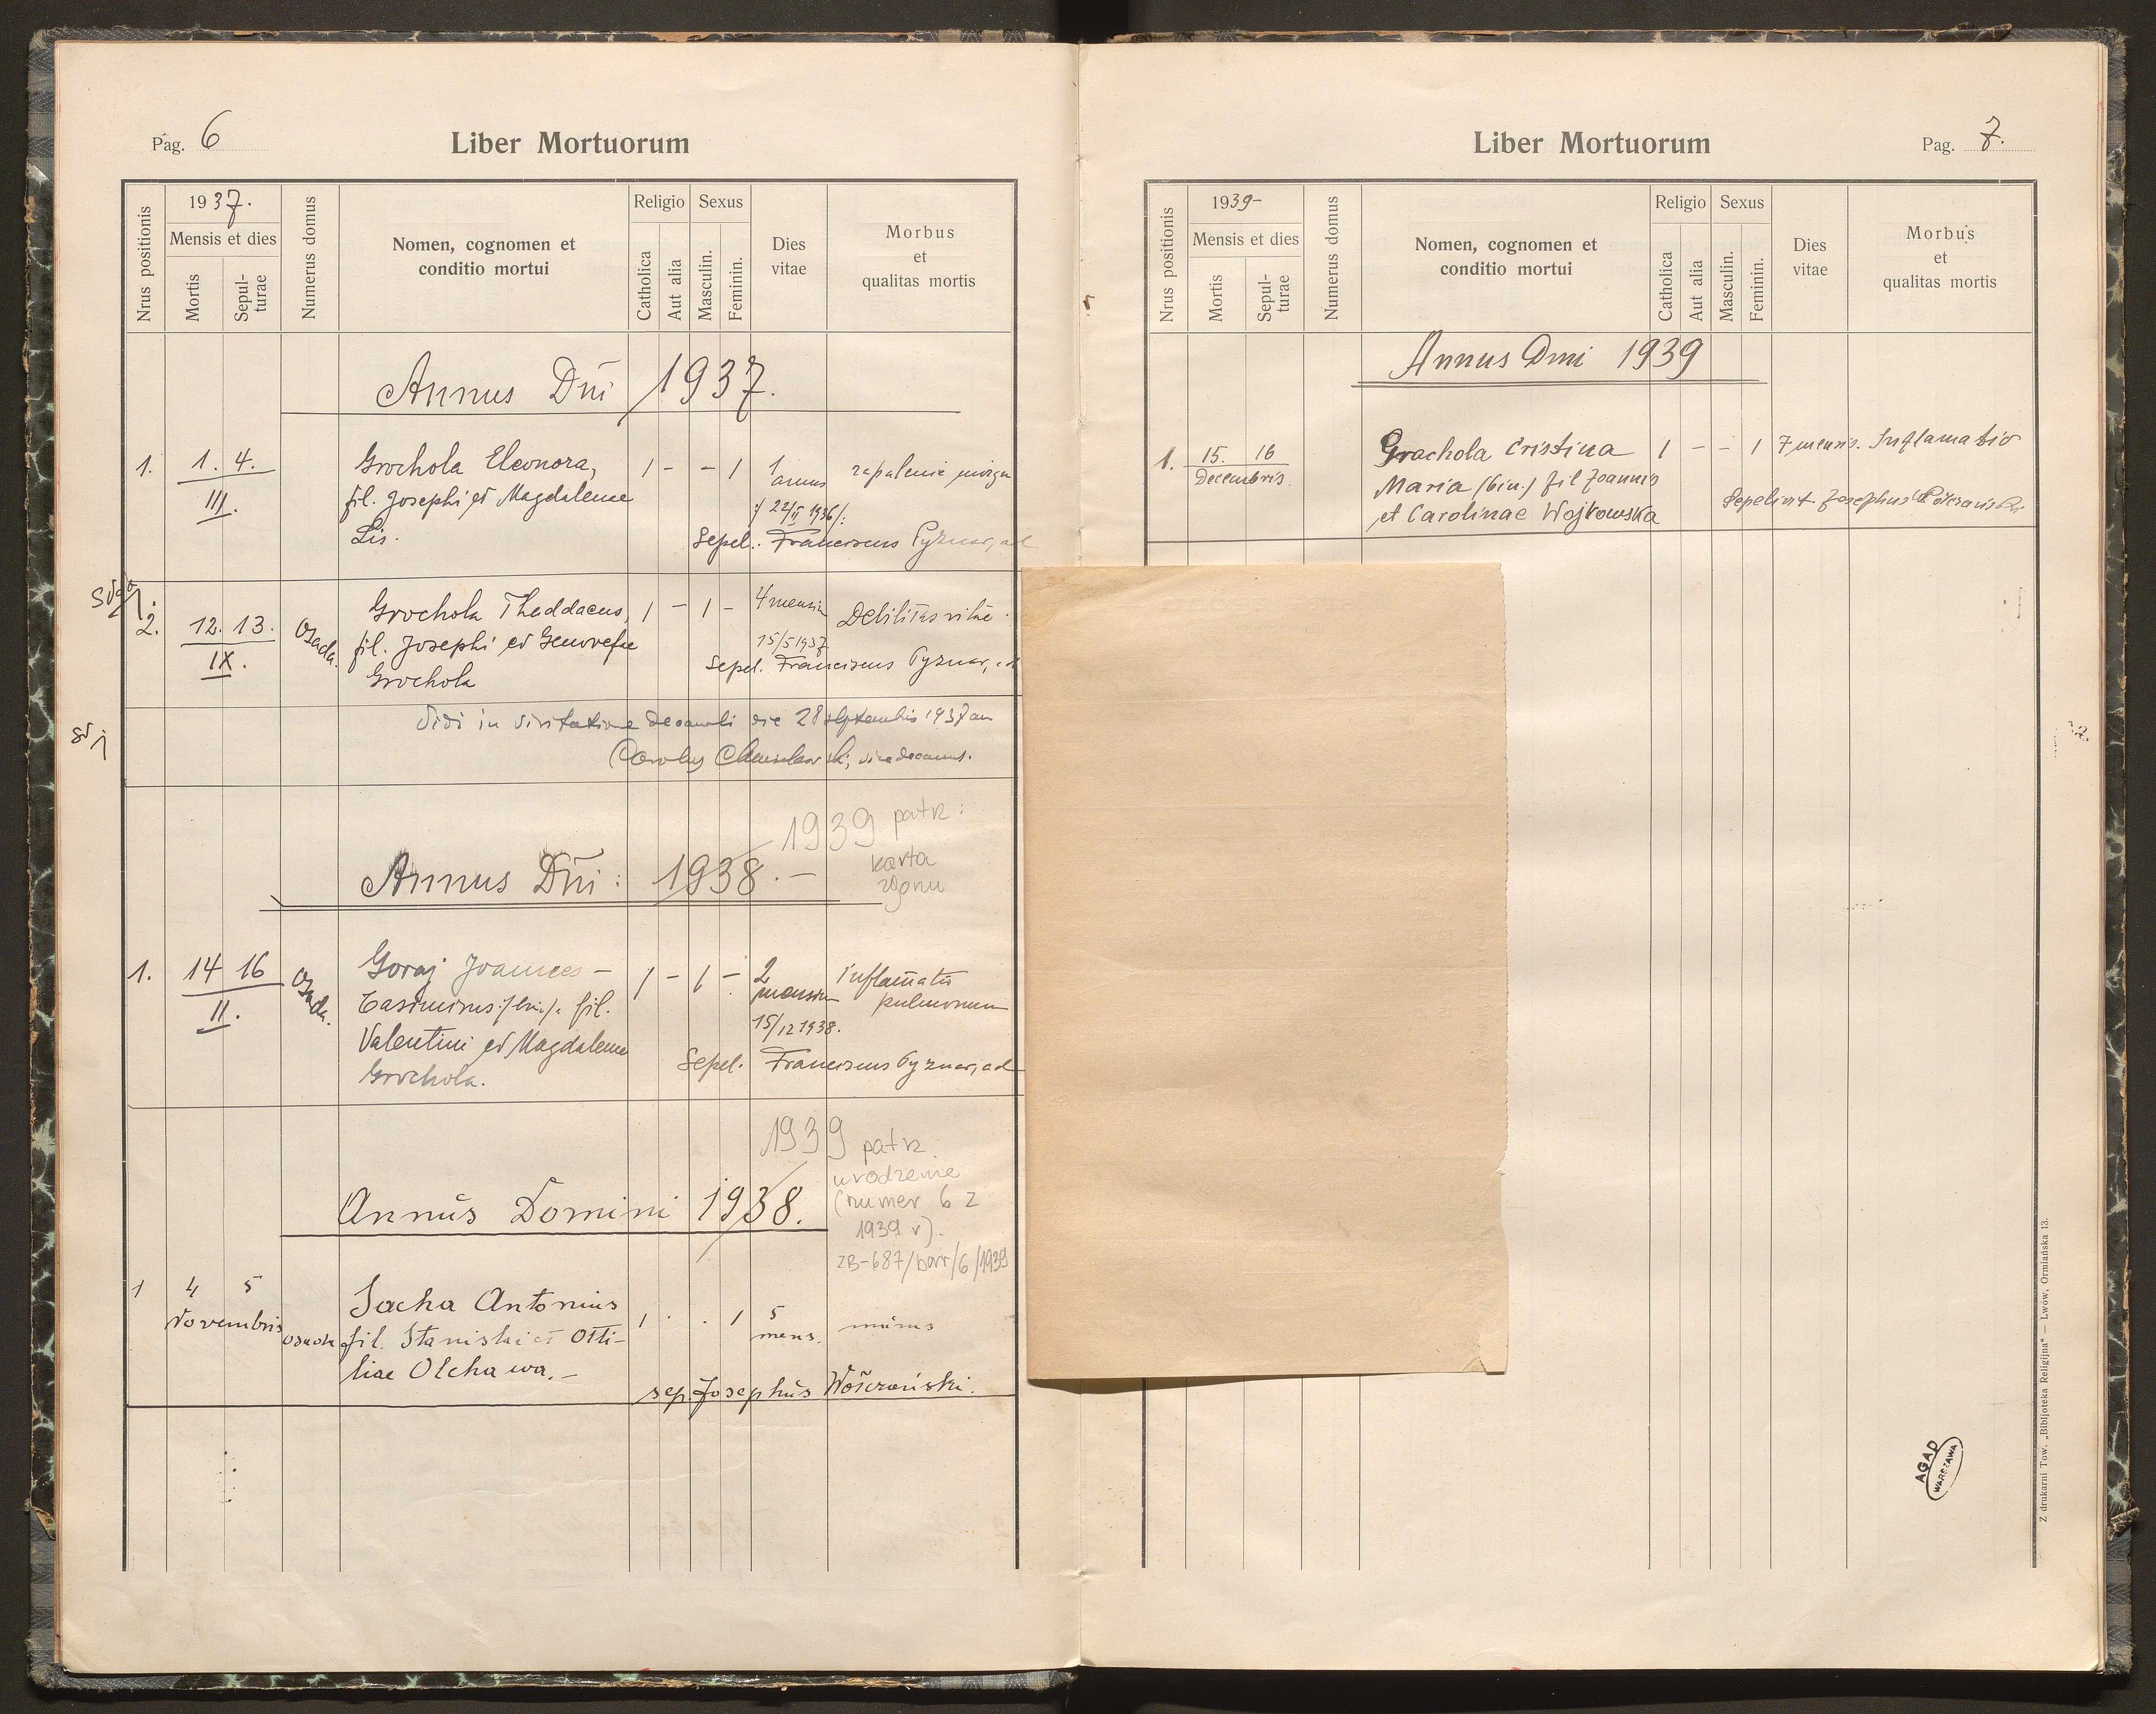 Pag. 6
Liber Mortuorum
Nrus positionis
1937.
Mensis et dies
Mortis
Sepul-
turae
Numerus domus
Nomen, cognomen et
conditio mortui
Religio
Catholica
Aut alia
Sexus
Masculin.
Feminin.
Dies
vitae
Morbus
et
qualitas mortis
Annus Dni 1937.
1. 1. 4. Grochola Eleonora, 1 - - 1 1 zapalenie mózgu
III. fil. Josephi et Magdalenae annus
/: 22/II 1936/:
Lis.
Sepel. Franciscus Pyznar,
2. 12. 13. Osada. Grochola Thaddaeus, 1 - 1 - 4 mensin Debilitas vitae
IX. fil. Josephi et Genovefae 15/5 1937
Grochola Sepel. Franciscus Pyznar,
Vidi in visitatione decanali die 28 septembris 1937 an
Carolus vicedecanus.
1939 patrz:
karta
zgonu
Annus Dni: 1938.-
1. 14 16 Osada. Goraj Joannes - 1 - 1 - 2 inflamatio
II. Casimirus /:bin:/ fil. mensin pulmonum
Valentini et Magdalenae 15/12 1938.
Grochola. Sepel. Franciscus Pyznar, ad
1939 patrz
urodzenie
(numer 6 z
1939 r).
ZB-687/ /6/1939
Annus Domini 1938.
1 4 5 Sacha Antonius 1 . . 1 5
Novembris osada fil. Stanislai et Otti- mens.
liae Olchawa.-
sep. Josephus Wołczański.
Liber Mortuorum
Pag. 7.
Nrus positionis
1939-
Mensis et dies
Mortis
Sepul-
turae
Numerus domus
Nomen, cognomen et
conditio mortui
Religio
Catholica
Aut alia
Sexus
Masculin.
Feminin.
Dies
vitae
Morbus
et
qualitas mortis
Annus Dmi 1939
1. 15. 16 Grachola Cristina 1 - - 1 7 mensis. Inflamatio
Decembris. Maria (bin.) fil Joannis
et Carolinae Wojkowska
Sepelivit Josephus
AGAD
WARSZAWA
Z drukarni Tow. „Bibljoteka Religijna“ — Lwów, Ormiańska 13.